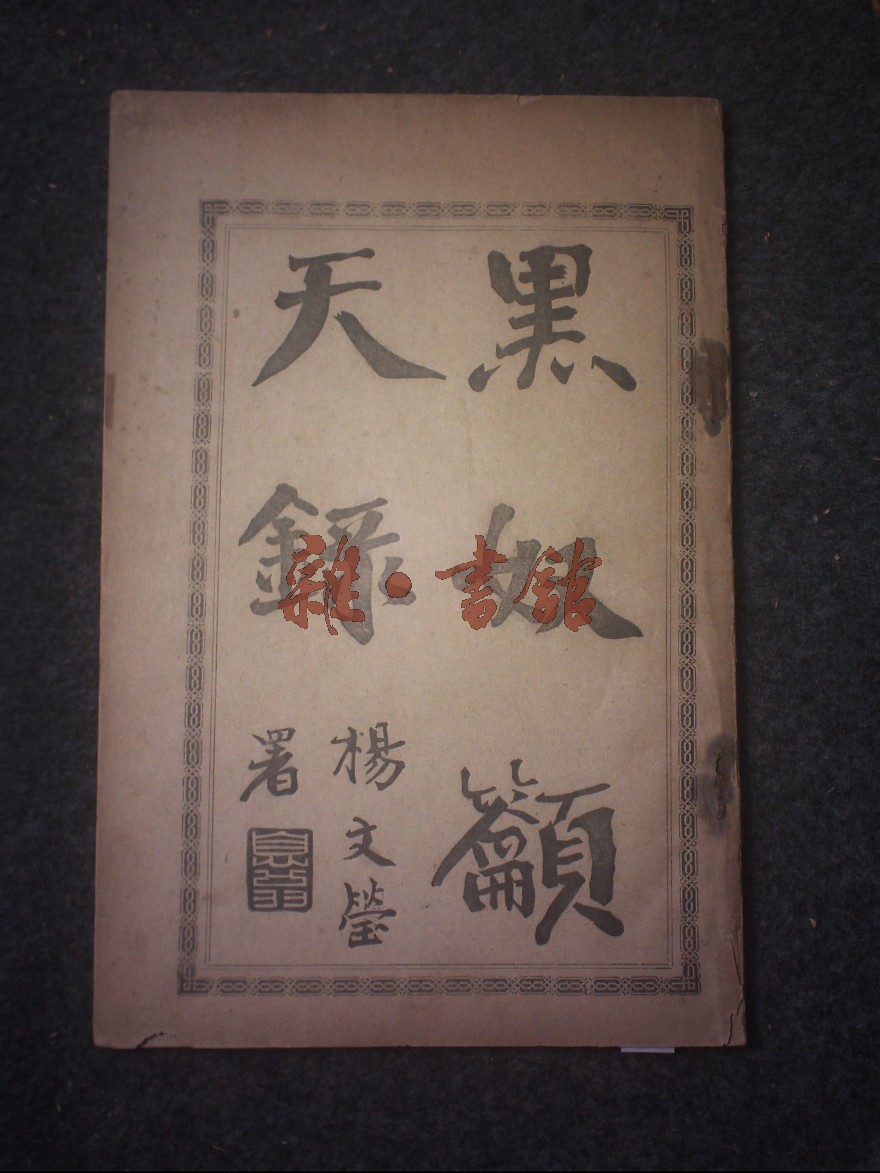 黑奴籲
天錄
楊文瑩
署
雜·書館